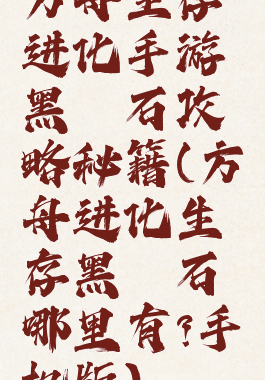 方舟生存
进化手游
黑 石攻
略秘籍(方
舟进化生
存黑 石
哪里有?手
机版)